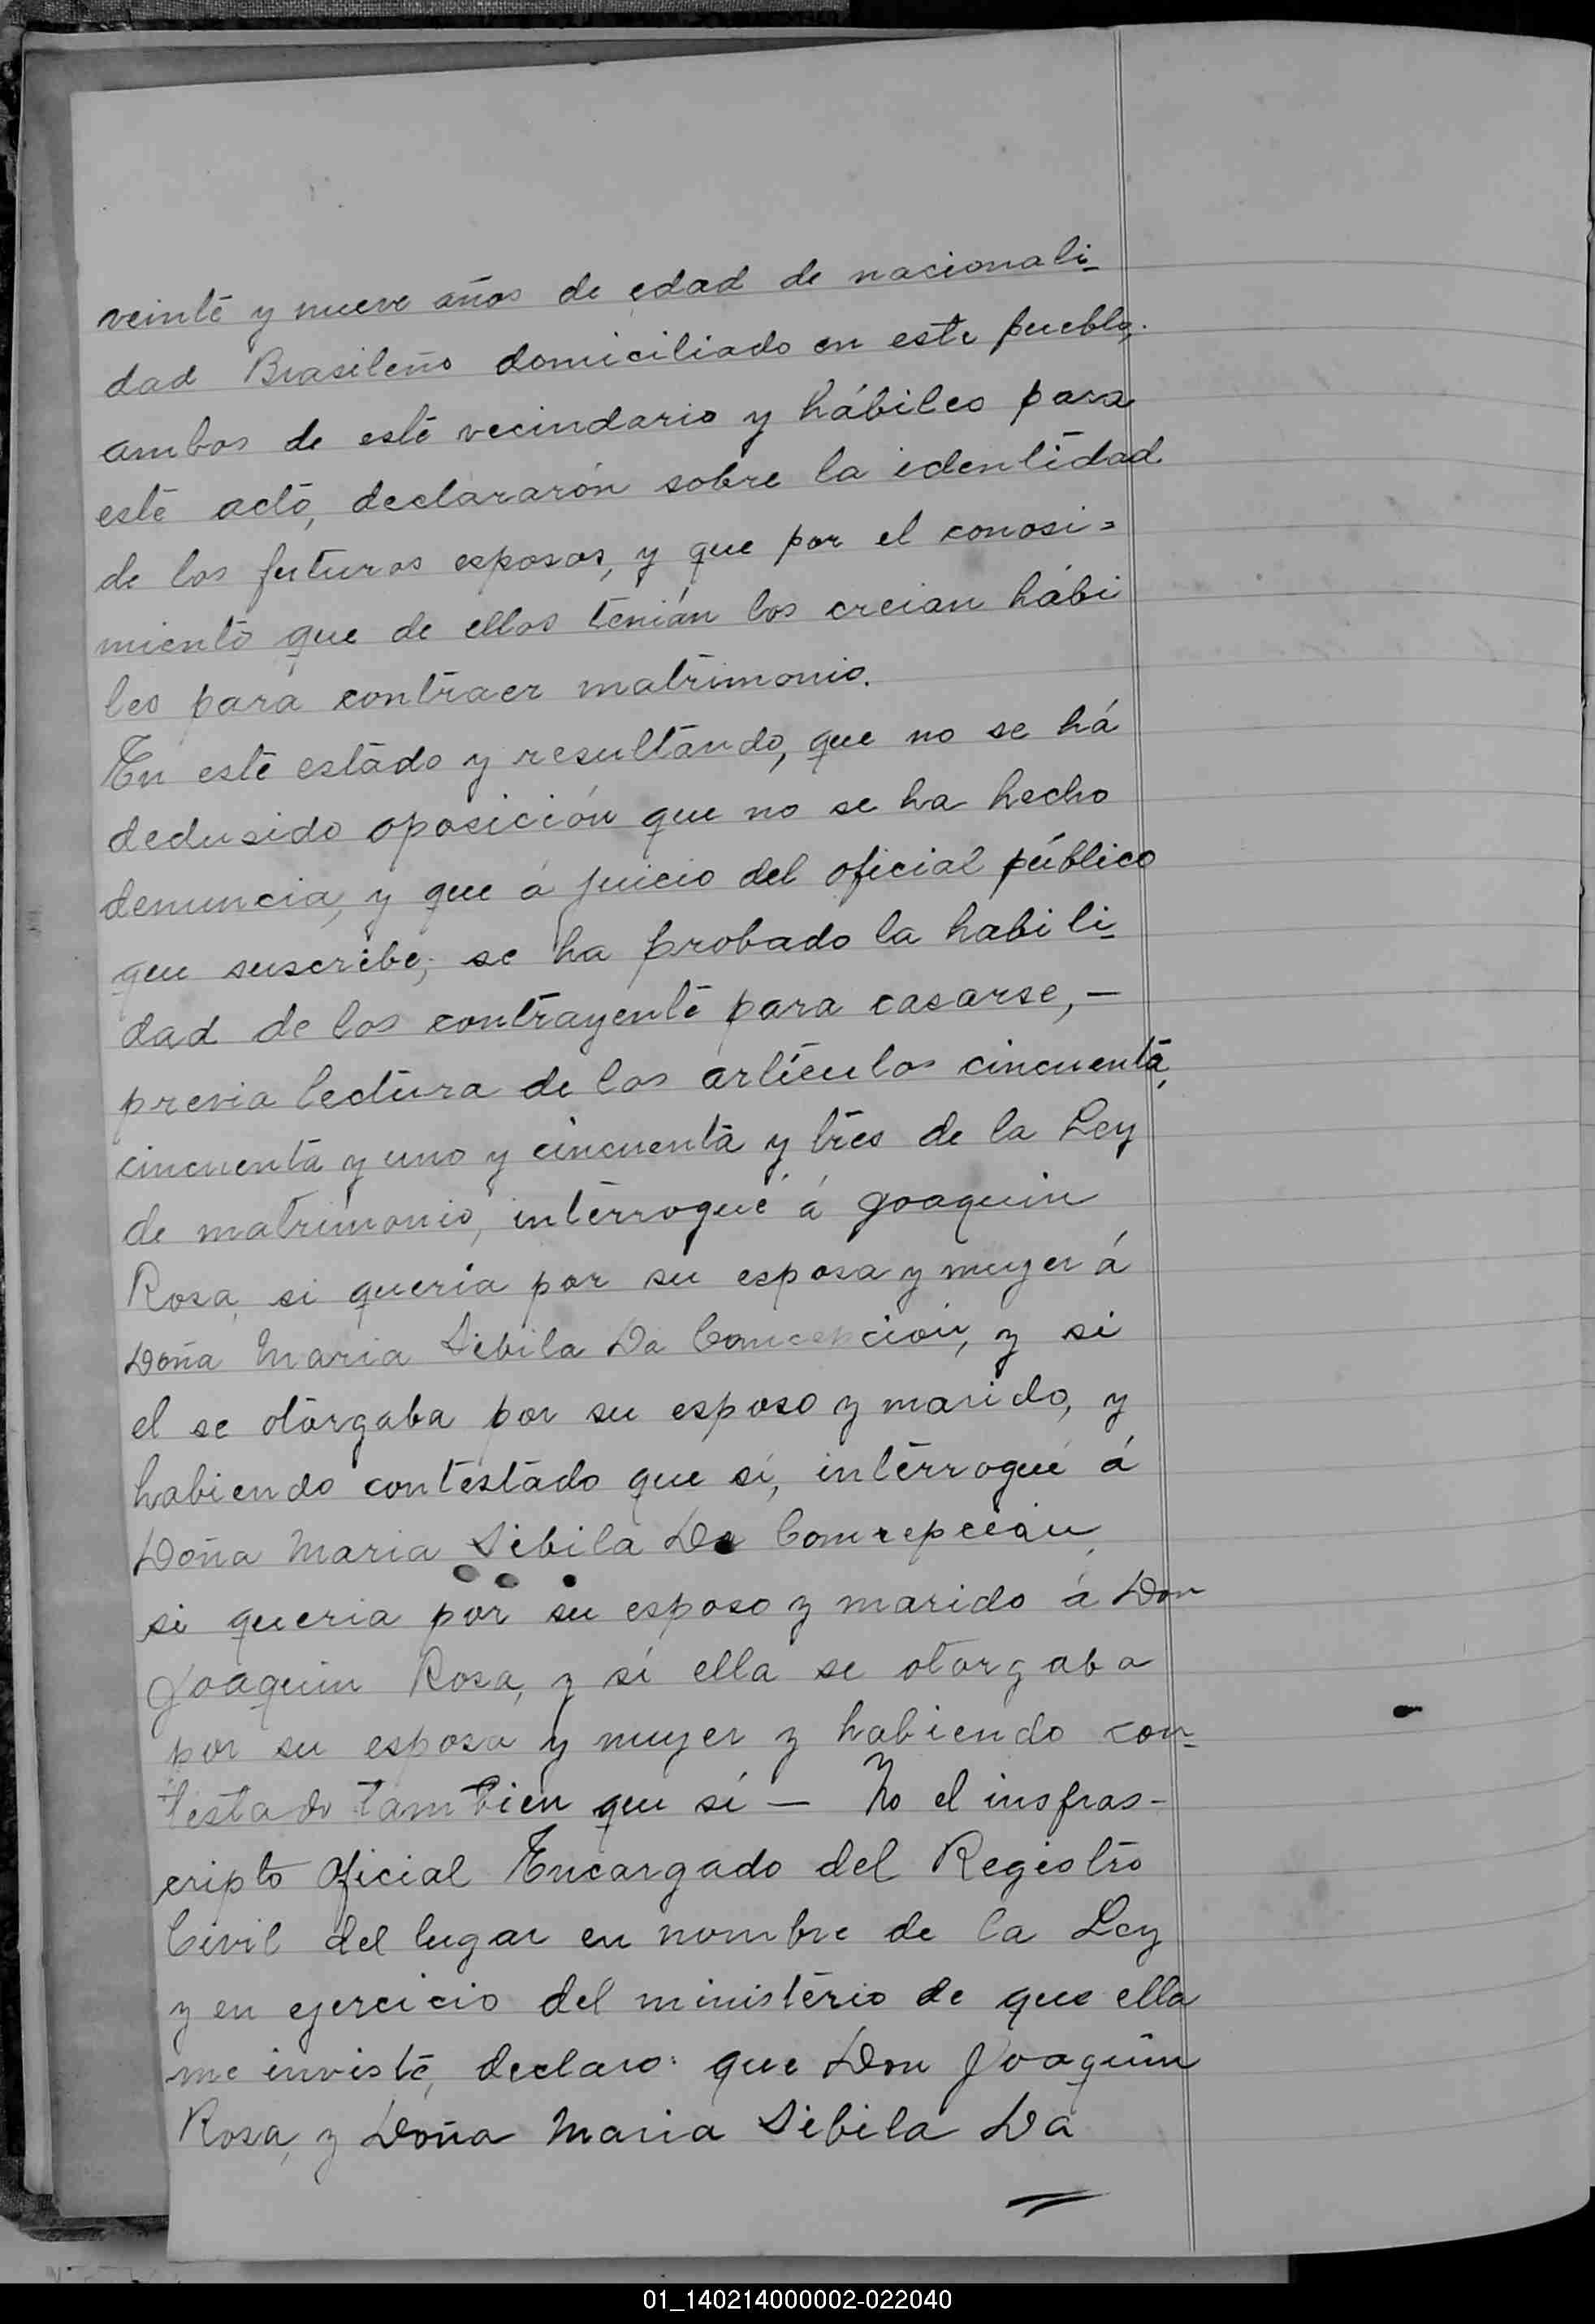 veinte y nueve años de edad de nacionali-
dad Brasileño domiciliado en este pueblo,
ambos de este vecindario y hábiles para
este acto, declararón sobre la identidad
de los futuros esposos, y que por el conosi=
miento que de ellos tenián los creian hábi
les para contraer matrimonio.
En este estado y resultando, que no se há
dedusido oposición que no se ha hecho
denuncia, y que á juicio del oficial público
que suscribe; se ha probado la habili-
dad de los contrayente para casarse, —
previa lectura de los artículos cincuenta,
cincuenta y uno y cincuenta y tres de la Ley
de matrimonio, interrogué á Joaquin
Rosa, si queria por su esposa y mujer á
Doña Maria Sibila Da Concepción, y si
el se otorgaba por su esposo y marido, y
habiendo contestado que sí, interrogué á
Doña Maria Sibila Da Concepción,
si queria por su esposo y marido á Don
Joaquin Rosa, y sí ella se otorgaba
por su esposa y mujer y habiendo con-
testado tambien que sí — Yo el insfras-
cripto Oficial Encargado del Registro
Civil del lugar en nombre de la Ley
y en ejercicio del ministerio de que ella
me inviste, declaro: que Don Joaquin
Rosa, y Doña Maria Sibila Da
01_140214000002-022040